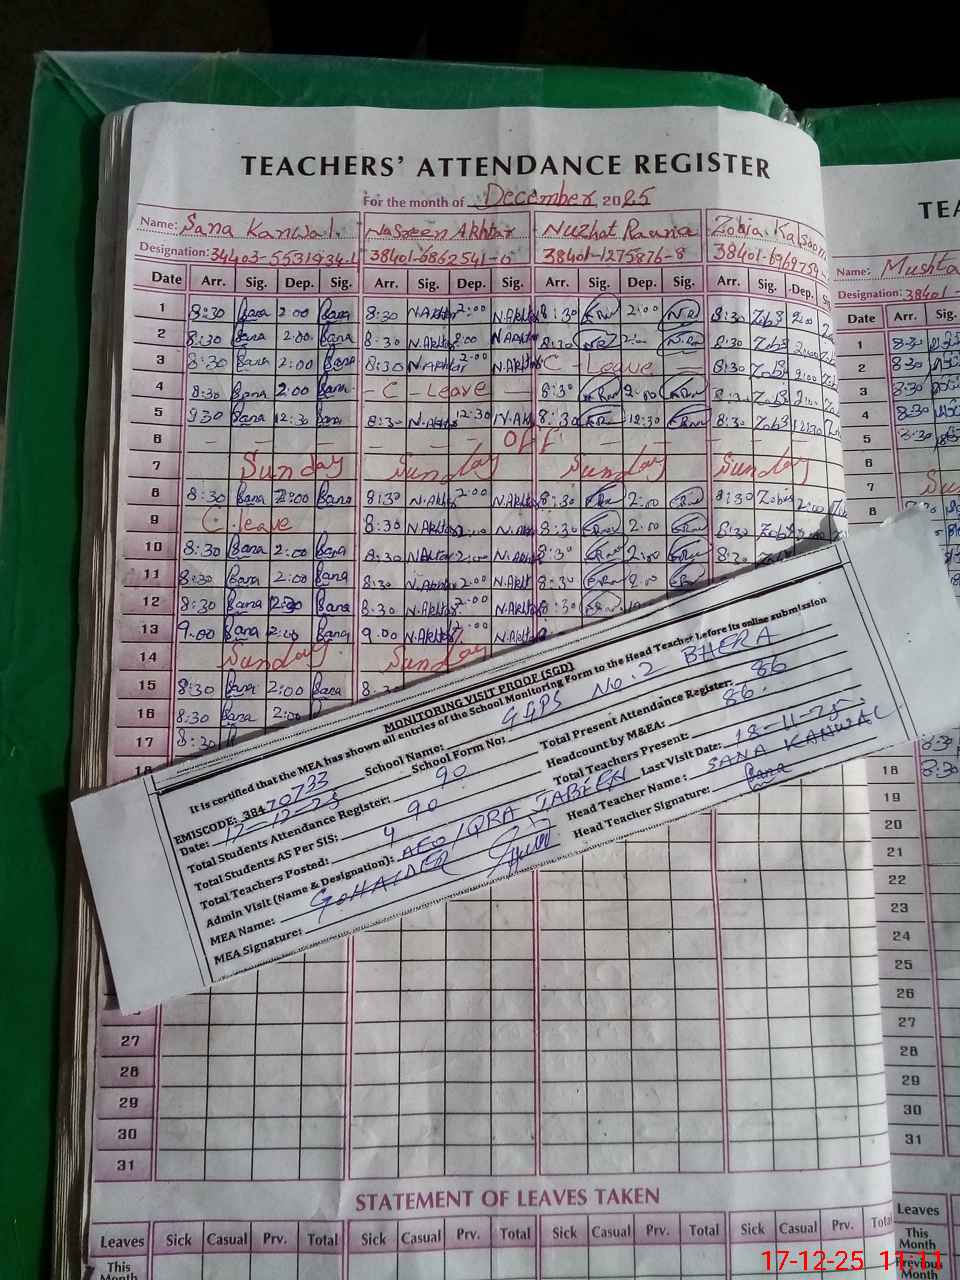 TEACHERS' ATTENDANCE REGISTER
For the month of December 2025
Name: Sana Kanwal Nasreen Akhtar Nuzhat Zobia
Designation: 38401-5862541-6 38401-1275876-8
Date Arr. Sig. Dep. Sig. Arr. Sig. Dep. Sig. Arr. Sig. Dep. Sig. Arr. Sig. Dep.
1 8:30 Sana 2:00 Sana 8:30 N.Akhtar 2:00 N.Akhtar 8:30 2:00 8:30 Zobi 2:00
2 8:30 Sana 2:00 Sana 8:30 N.Akhtar 2:00 N.Akhtar 8:30 2:00 8:30 Zobi 2:00
3 8:30 Sana 2:00 Sana 8:30 N.Akhtar 2:00 N.Akhtar C - Leave 8:30 Zobi 2:00
4 8:30 Sana 2:00 Sana - C - Leave 8:30 2:00 8:30 Zobi 2:00
5 Sana 12:30 Sana 8:30 N.Akhtar 12:30 N.Akh 8:30 12:30 8:30 Zobi 12:30
6 OFF
7 Sunday Sunday Sunday Sunday
8 8:30 Sana 2:00 Sana 8:30 N.Akhtar 2:00 N.Akhtar 8:30 2:00 8:30 Zobi 2:00
9 C - leave 8:30 N.Akhtar 2:00 N.Akh 8:30 2:00 8:30 Zobi
10 8:30 Sana 2:00 Sana 8:30 N.Akhtar 2:00 N.Akh 8:30 2:00 8:30
11 8:30 Sana 2:00 Sana 8:30 N.Akhtar 2:00 N.Akht 8:30 2:00
12 8:30 Sana 2:00 Sana 8:30 N.Akhtar 2:00 N.Akht 8:30
13 9:00 Sana 2:00 Sana 9:00 N.Akhtar N.Akh
14 Sunday Sunday
15 8:30 Sana 2:00 Sana
16 8:30 Sana 2:00
17 8:30
MONITORING VISIT PROOF (SGD)
It is certified that the MEA has shown all entries of the School Monitoring Form to the Head Teacher before its online submission
EMISCODE: 38470733 School Name: GGPS No. 2 BHERA
Date: 17-12-25 School Form No:
Total Students Attendance Register: 90 Total Present Attendance Register: 86
Total Students AS Per SIS: 90 Headcount by M&EA: 86
Total Teachers Posted: 4 Total Teachers Present:
Admin Visit (Name & Designation): AEO IQRA JABEEN Last Visit Date: 18-11-25
MEA Name: G. HAIDER Head Teacher Name: SANA KANWAL
MEA Signature: Head Teacher Signature: Sana
27
28
29
30
31
STATEMENT OF LEAVES TAKEN
Leaves Sick Casual Prv. Total Sick Casual Prv. Total Sick Casual Prv. Total Sick Casual Prv. Total
This
Month
TEA
Name:
Designation: 38401-
Date Arr. Sig.
1 8:30
2 8:30
3 8:30
4 8:30
5 8:30
6
7
8
18 8:30
19
20
21
22
23
24
25
26
27
28
29
30
31
Leaves
This
Month
Previous
Month
17-12-25 11:11